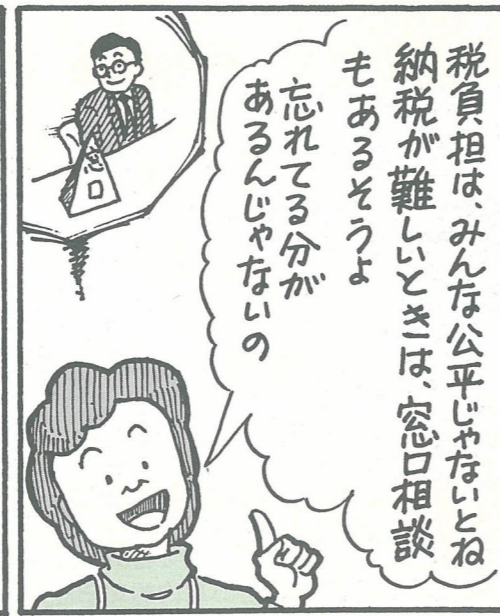 税負担は、みんな公平じゃないとね
納税が難しいときは、窓口相談
もあるそうよ
忘れてる分が
あるんじゃないの